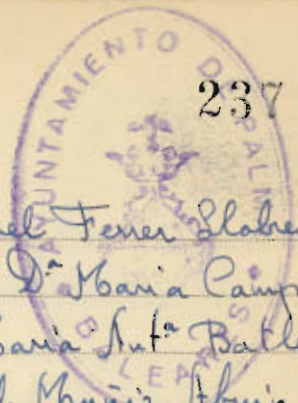 AYUNTAMIENTO DE PALMA
BALEARES
237
el Ferrer Llabre
Dª Maria Camp
aria Antª Batl